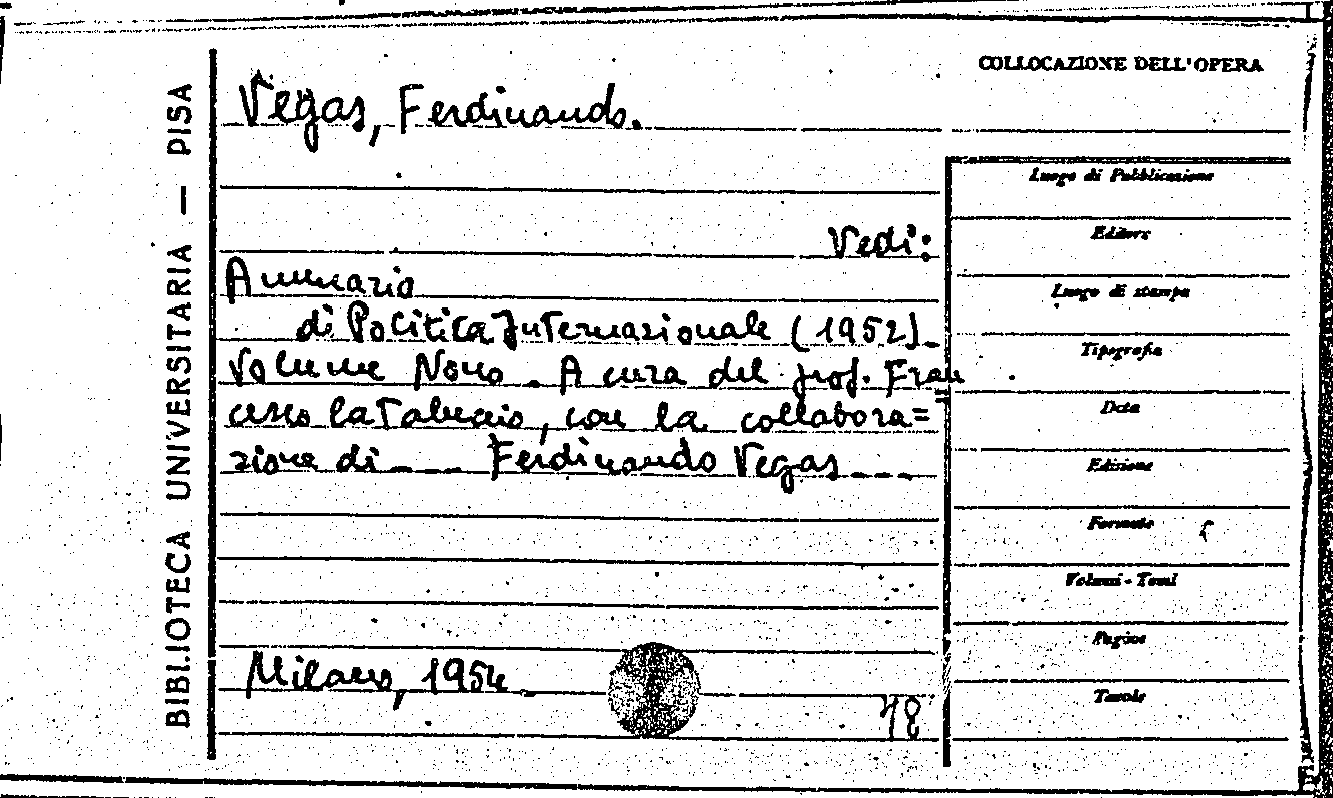 BIBLIOTECA UNIVERSITARIA — PISA
COLLOCAZIONE DELL'OPERA
Vegas, Ferdinando.
Vedi:
Annuario
di Politica Internazionale (1952).
Volume Nono. A cura del prof. Fran=
cesco Cataluccio, con la collabora=
zione di ---- Ferdinando Vegas ---
Milano, 1954.
48
Luogo di Pubblicazione
Editore
Luogo di stampa
Tipografia
Data
Edizione
Formato
Volumi - Tomi
Pagine
Tavole